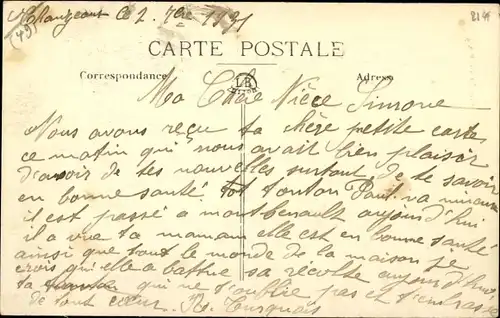 le 2. 7bre 1931
(49)
CARTE POSTALE
Correspondance
LB
Adresse
Ma Chère Nièce Simone
Nous avons reçu ta chère petite carte
ce matin qui nous avait bien plaisir
d'avoir de tes nouvelles surtout de te savoir
en bonne santé. tonton Paul va
il est passé a aujourd'hui
il a vue ta maman elle est en bonne santé
ainsi que tout le monde de la maison je
crois qu'elle a battue sa récolte aujourd'hui
ta qui ne t'oublie pas et t'embrasse
de tout cœur